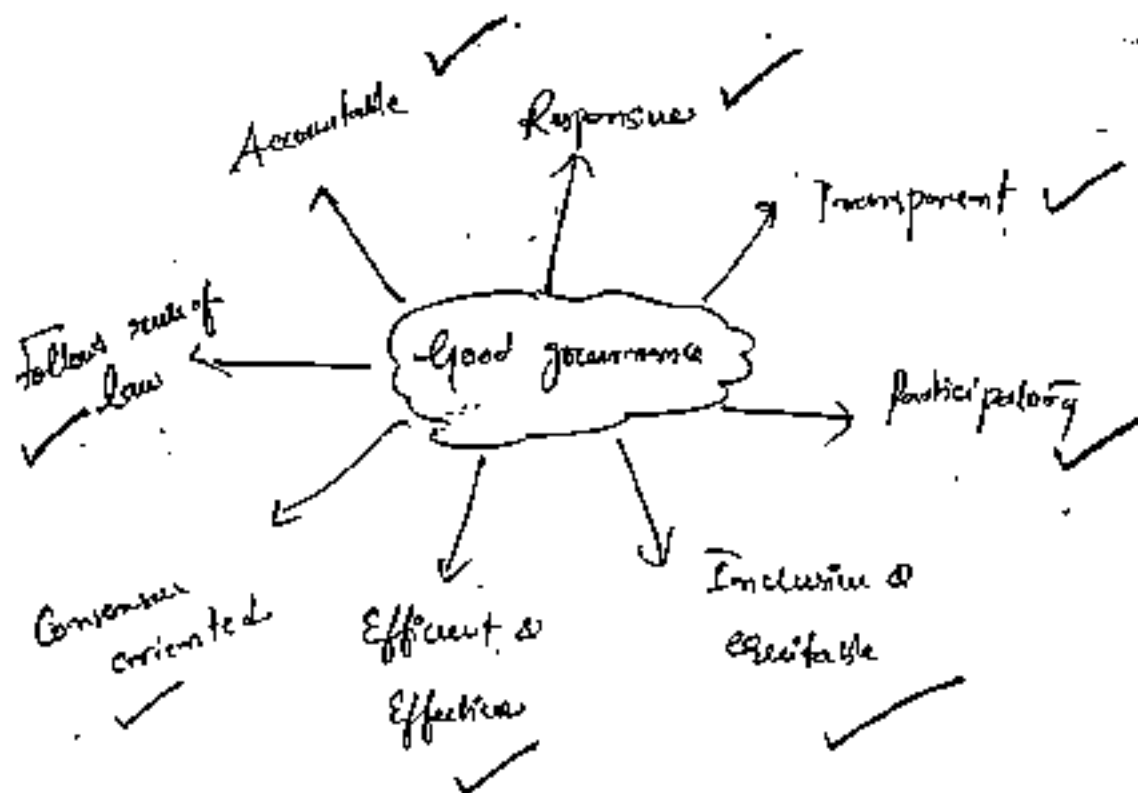 Accountable
Responsive
Transparent
Follows rule of
law
Good governance
Participatory
Consensus
oriented
Efficient &
Effective
Inclusive &
equitable